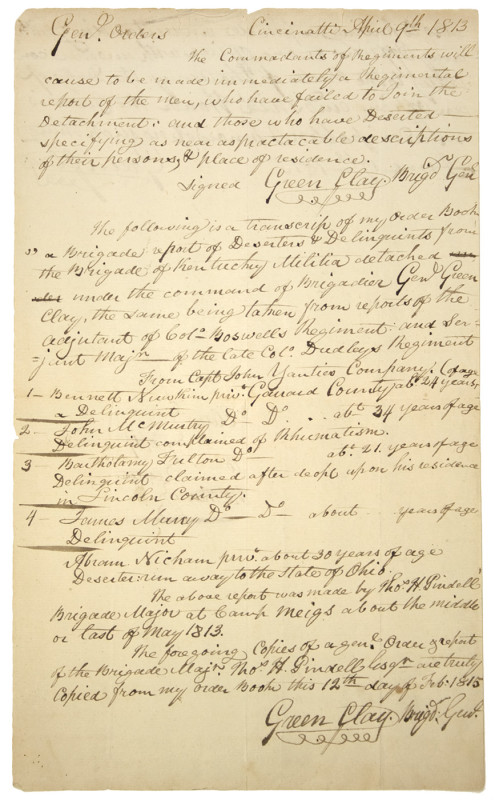 Genl. Orders Cincinatti April 9th 1813
The Commadants of Regiments will
cause to be made immediately a Regimental
report of the men, who have failed to Join the
Detachment: and those who have Deserted
specifying as near as practacable descriptions
of their persons, & place of residence.
Signed Green Clay. Brigd. Genl.
The following is a transcript of my order Book
a Brigade report of Deserters & Delinquints from
the Brigade of Kentucky Militia detached
under the command of Brigadier Genl. Green
Clay, the same being taken from reports of the
adjutant of Colo. Boswells Regiment and Ser-
=jant Majr. of the late Colo. Dudleys Regiment
From Capt John Yanties Company. (of age
1 – Bennett privt. Garrard County abt. 24 years
a Delinquint
2 – John McMurtry Do Do .. abt. 34 years of age
Delinquint complained of Rhumatism.
3 – Bartholamy Fulton Do abt. 21. years of age
Delinquint claimed after upon his residence
in Lincoln County.
4 – James Murry Do – Do – about years of age
Delinquint
Abram Nicham privt. about 30 years of age
Deserter: run away to the State of Ohio.
The above report was made by Thos. H. Pindell
Brigade Major at Camp Meigs about the middle
or last of May 1813.
The foregoing Copies of a genl. Order & report
of the Brigade Majr. Thos. H. Pindell esqr. are truly
Copied from my order Book this 12th day of Feb. 1815
Green Clay. Brigd. Genl.